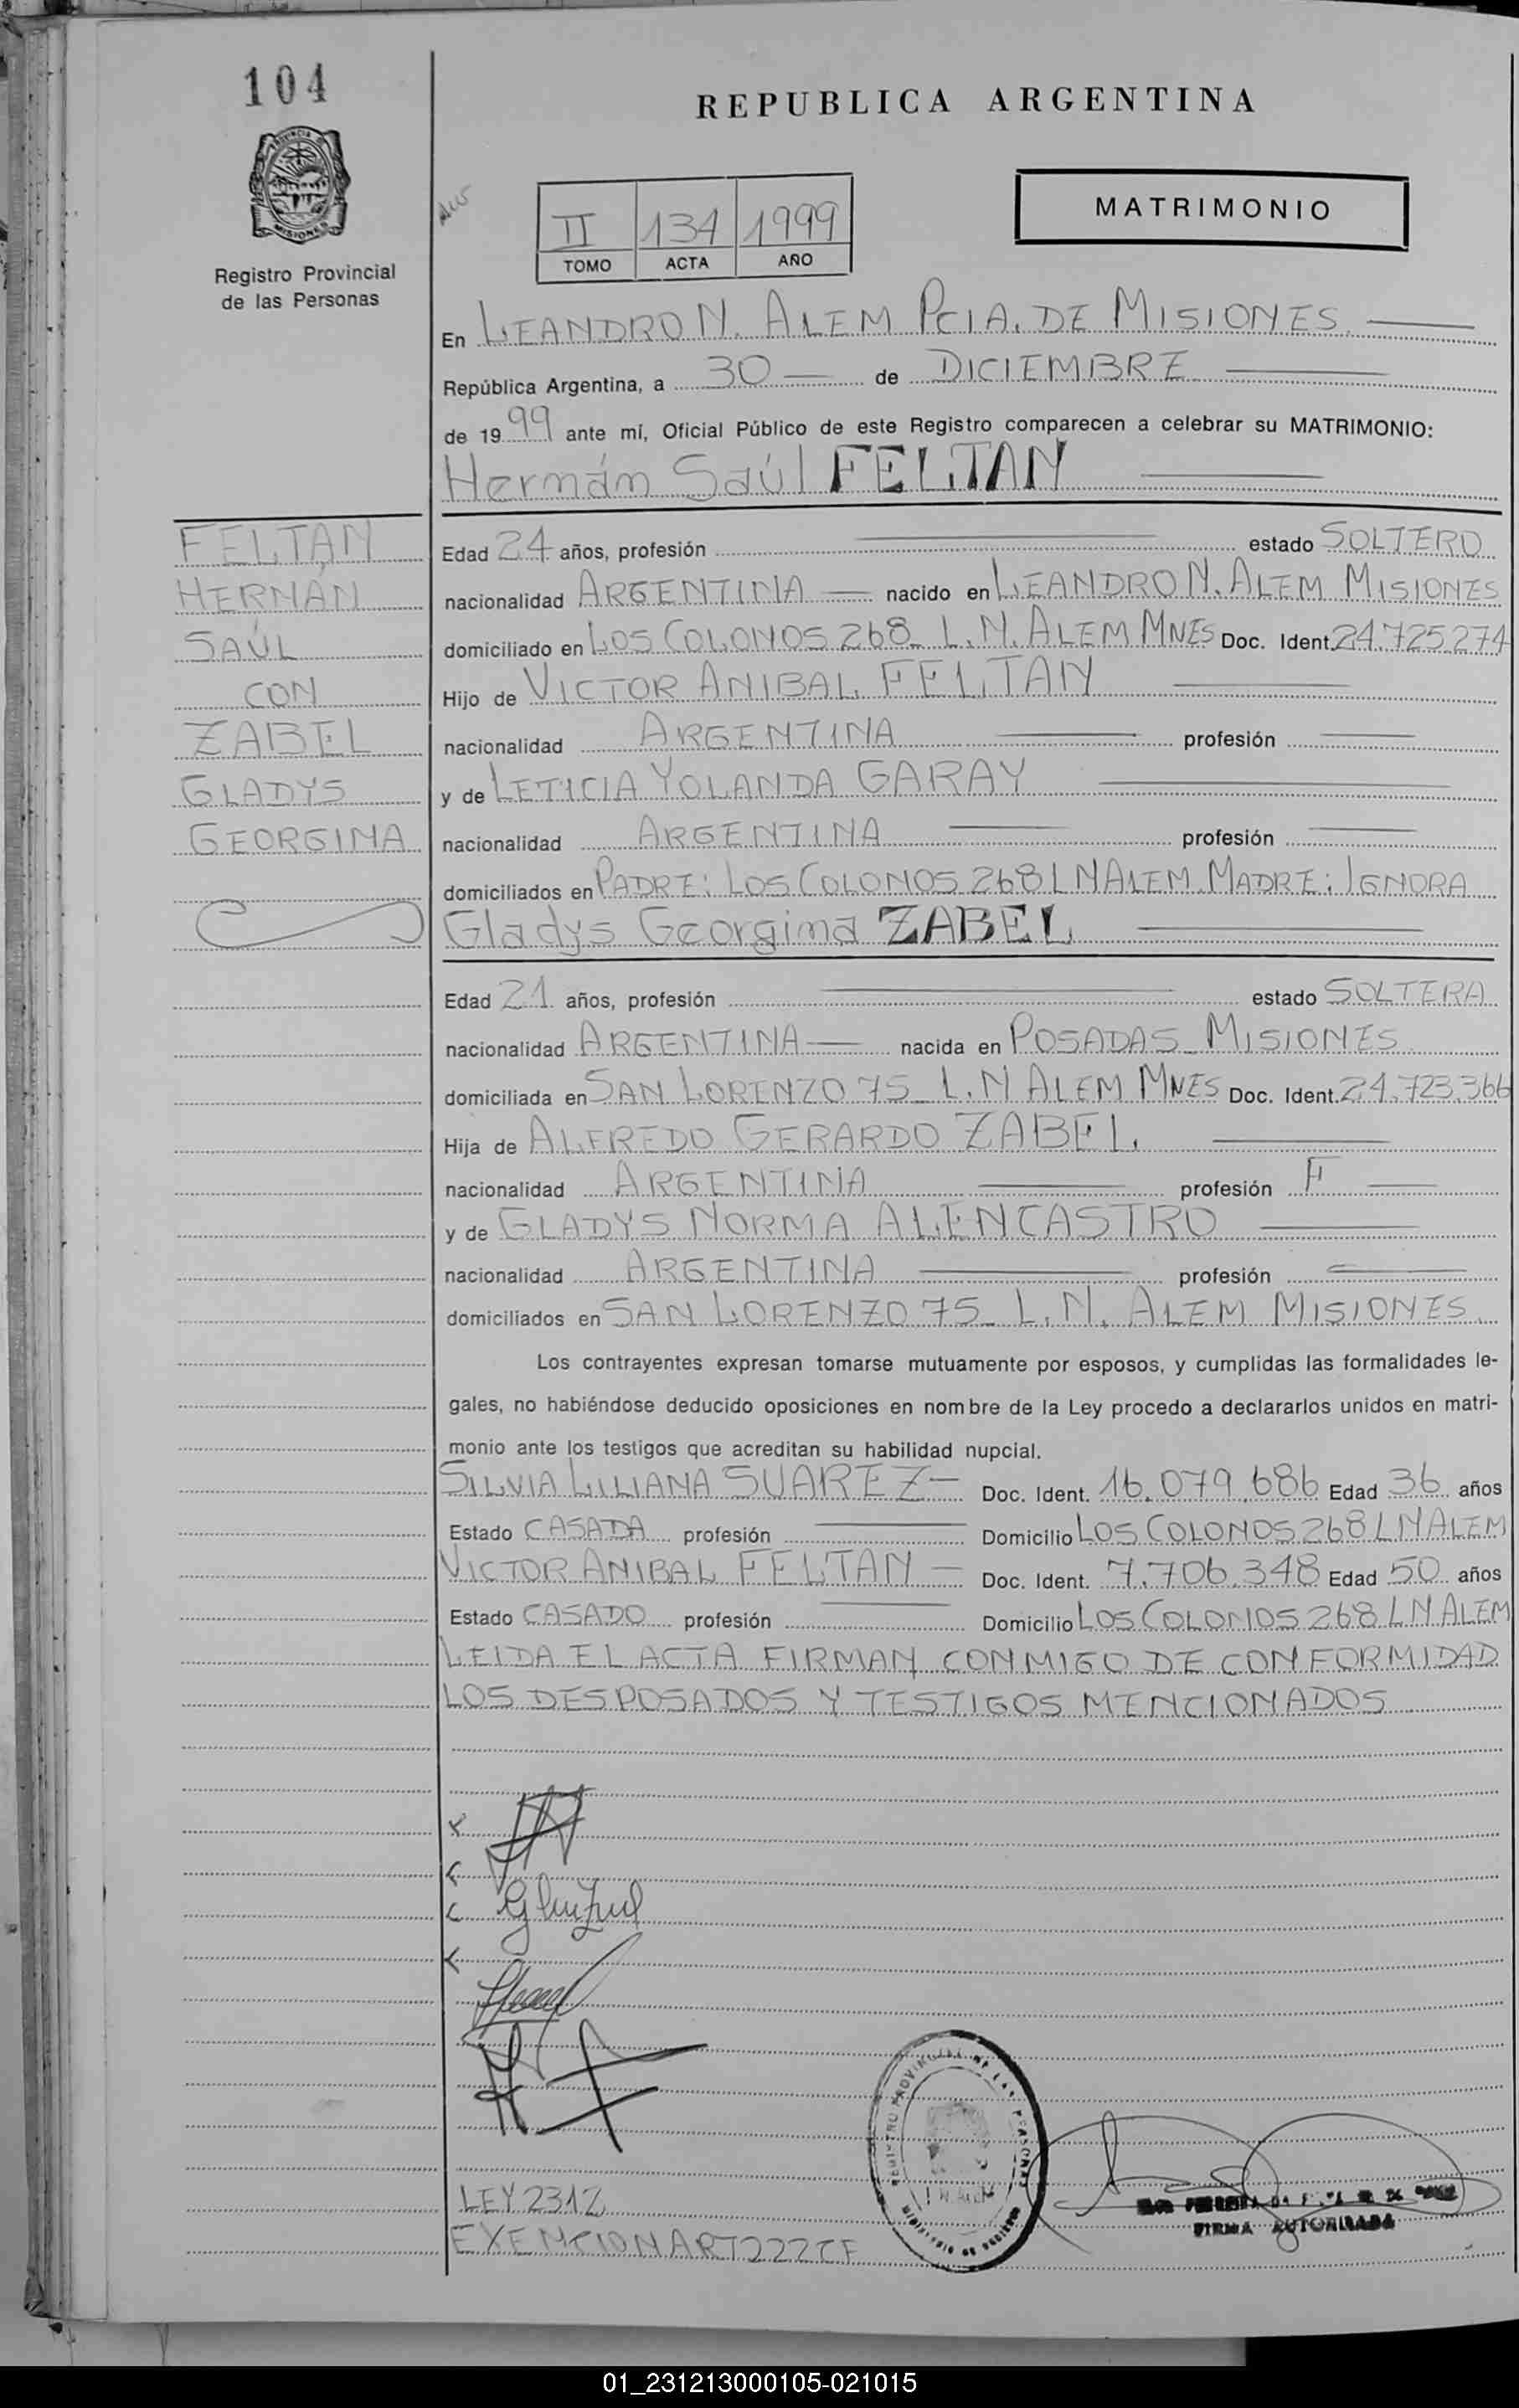 104
REPUBLICA ARGENTINA
MATRIMONIO
II 134 1999
TOMO ACTA AÑO
Registro Provincial
de las Personas
En LEANDRO N. ALEM PCIA. DE MISIONES
República Argentina, a 30 de DICIEMBRE
de 1999 ante mí, Oficial Público de este Registro comparecen a celebrar su MATRIMONIO:
Hernán Saúl FELTAN
FELTAN
HERNÁN
SAÚL
CON
ZABEL
GLADYS
GEORGINA
Edad 24 años, profesión estado SOLTERO
nacionalidad ARGENTINA nacido en LEANDRO N. ALEM MISIONES
domiciliado en LOS COLONOS 268 L.N. ALEM MNES Doc. Ident. 24.725.274
Hijo de VICTOR ANIBAL FELTAN
nacionalidad ARGENTINA profesión
y de LETICIA YOLANDA GARAY
nacionalidad ARGENTINA profesión
domiciliados en PADRE: LOS COLONOS 268 L N ALEM MADRE: IGNORA
Gladys Georgina ZABEL
Edad 21 años, profesión estado SOLTERA
nacionalidad ARGENTINA nacida en POSADAS MISIONES
domiciliada en SAN LORENZO 75 L.N ALEM MNES Doc. Ident. 24.723.366
Hija de ALFREDO GERARDO ZABEL
nacionalidad ARGENTINA profesión F
y de GLADYS NORMA ALENCASTRO
nacionalidad ARGENTINA profesión
domiciliados en SAN LORENZO 75 L.N. ALEM MISIONES
Los contrayentes expresan tomarse mutuamente por esposos, y cumplidas las formalidades le-
gales, no habiéndose deducido oposiciones en nombre de la Ley procedo a declararlos unidos en matri-
monio ante los testigos que acreditan su habilidad nupcial.
SILVIA LILIANA SUAREZ Doc. Ident. 16.079.686 Edad 36 años
Estado CASADA profesión Domicilio LOS COLONOS 268 L N ALEM
VICTOR ANIBAL FELTAN Doc. Ident. 7.706.348 Edad 50 años
Estado CASADO profesión Domicilio LOS COLONOS 268 L N ALEM
LEIDA EL ACTA FIRMAN CONMIGO DE CONFORMIDAD
LOS DESPOSADOS Y TESTIGOS MENCIONADOS
FIRMA AUTORIZADA
LEY 2312
EXENCION ART 222 CF
01_231213000105-021015